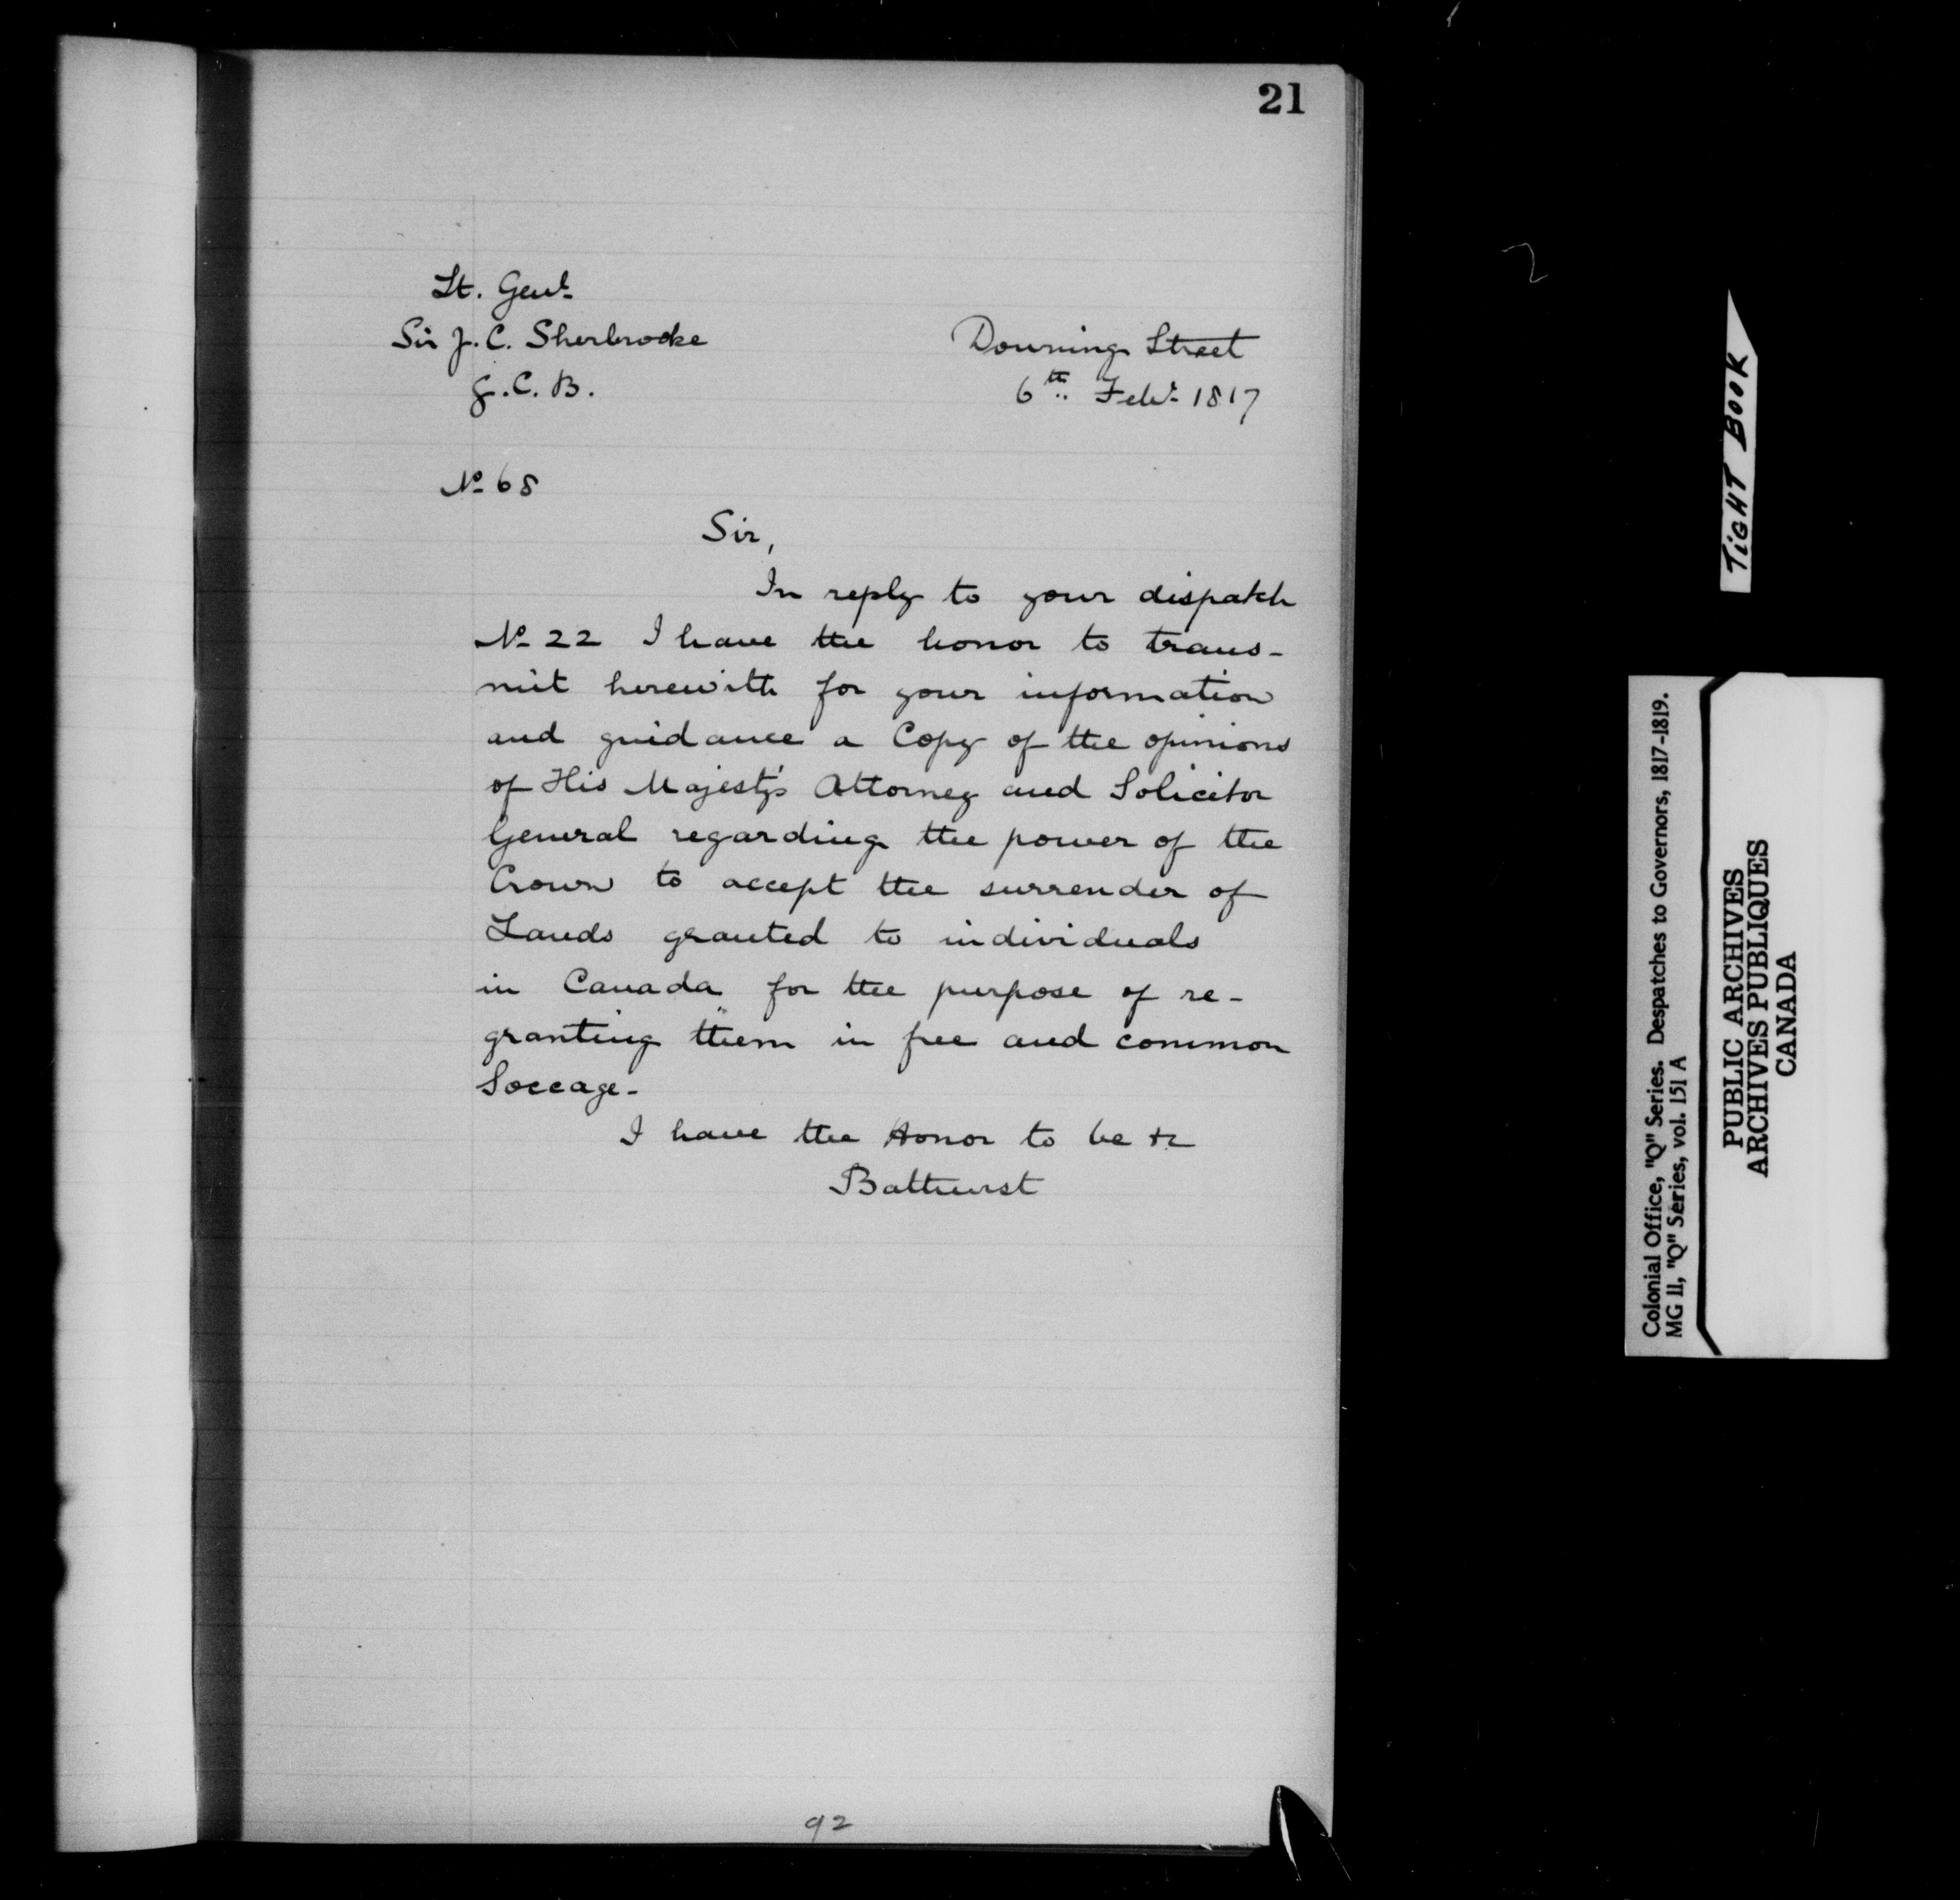 21
Lt. Genl.
Sir J. C. Sherbrooke
G.C.B.
Downing Street
6th Feby. 1817
No. 68
Sir,
In reply to your dispatch
No. 22 I have the honor to trans-
mit herewith for your information
and guidance a Copy of the opinions
of His Majesty's Attorney and Solicitor
General regarding the power of the
Crown to accept the surrender of
Lands granted to individuals
in Canada for the purpose of re-
granting them in free and common
Soccage-
I have the Honor to be &c
Bathurst
92
2
TIGHT BOOK
Colonial Office, "Q" Series. Despatches to Governors, 1817-1819.
MG 11, "Q" Series, vol. 151 A
PUBLIC ARCHIVES
ARCHIVES PUBLIQUES
CANADA